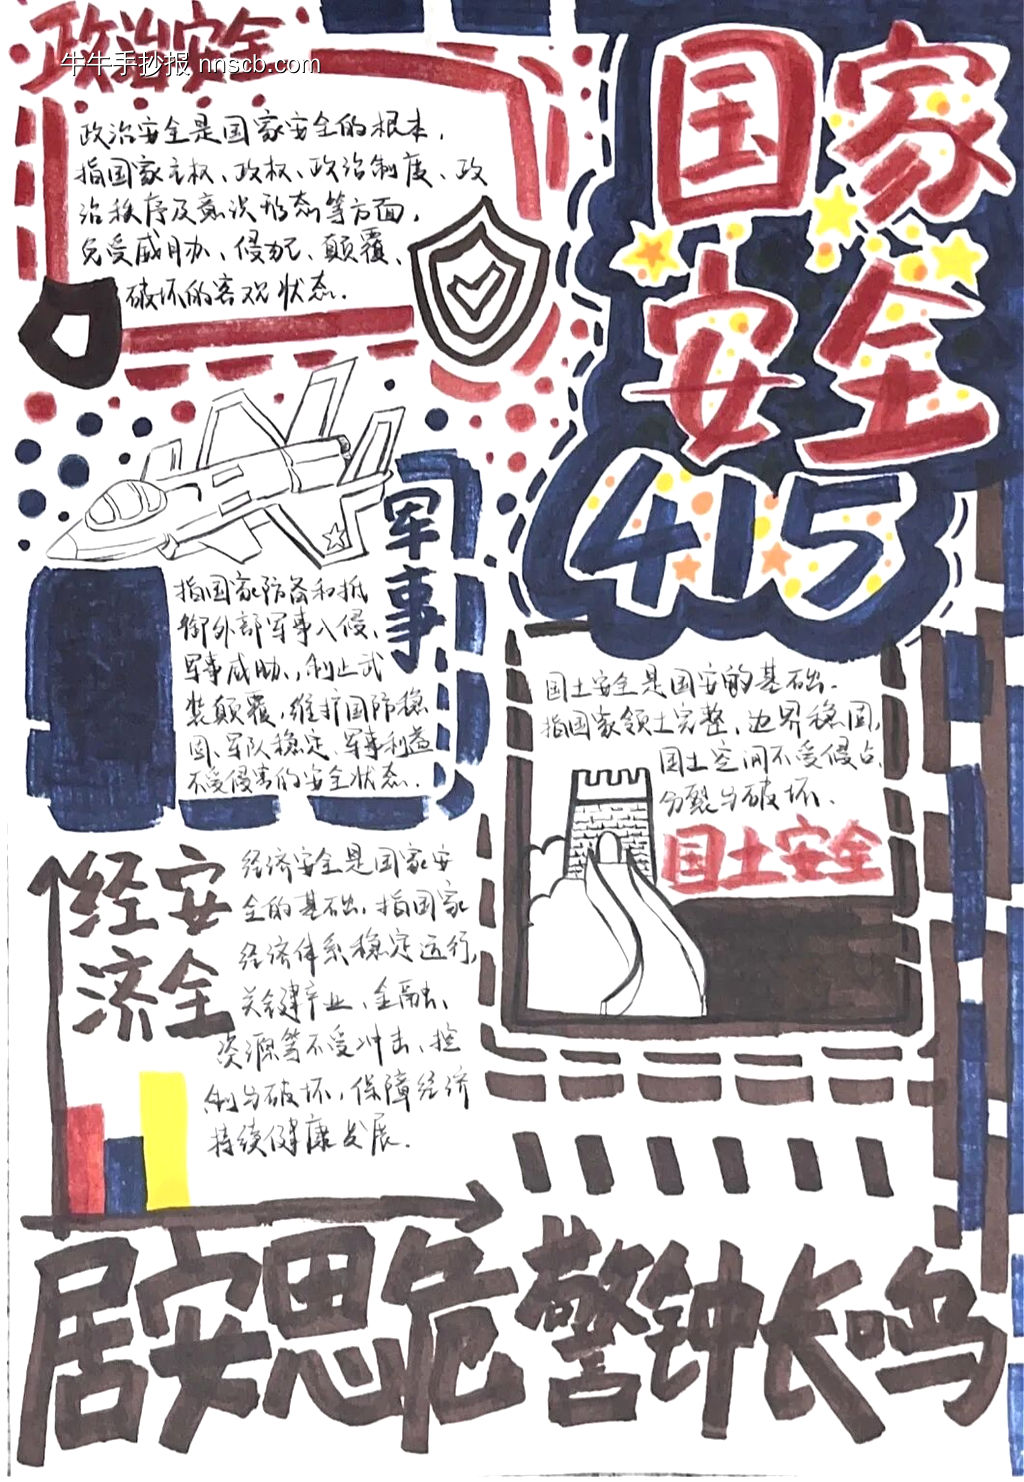 政治安全
牛牛手抄报 nnscb.com
政治安全是国家安全的根本，
指国家主权、政权、政治制度、政
治秩序及意识形态等方面，
免受威胁、侵犯、颠覆、
破坏的客观状态.
国家
安全
415
军事
指国家防备和抵
御外部军事入侵、
军事威胁，制止武
装颠覆，维护国防稳
固、军队稳定、军事利益
不受侵害的安全状态.
国土安全是国安的基础.
指国家领土完整、边界稳固，
国土空间不受侵占、
分裂与破坏.
国土安全
经济安全
经济安全是国家安
全的基础，指国家
经济体系稳定运行，
关键产业、金融、
资源等不受冲击、控
制与破坏，保障经济
持续健康发展.
居安思危 警钟长鸣